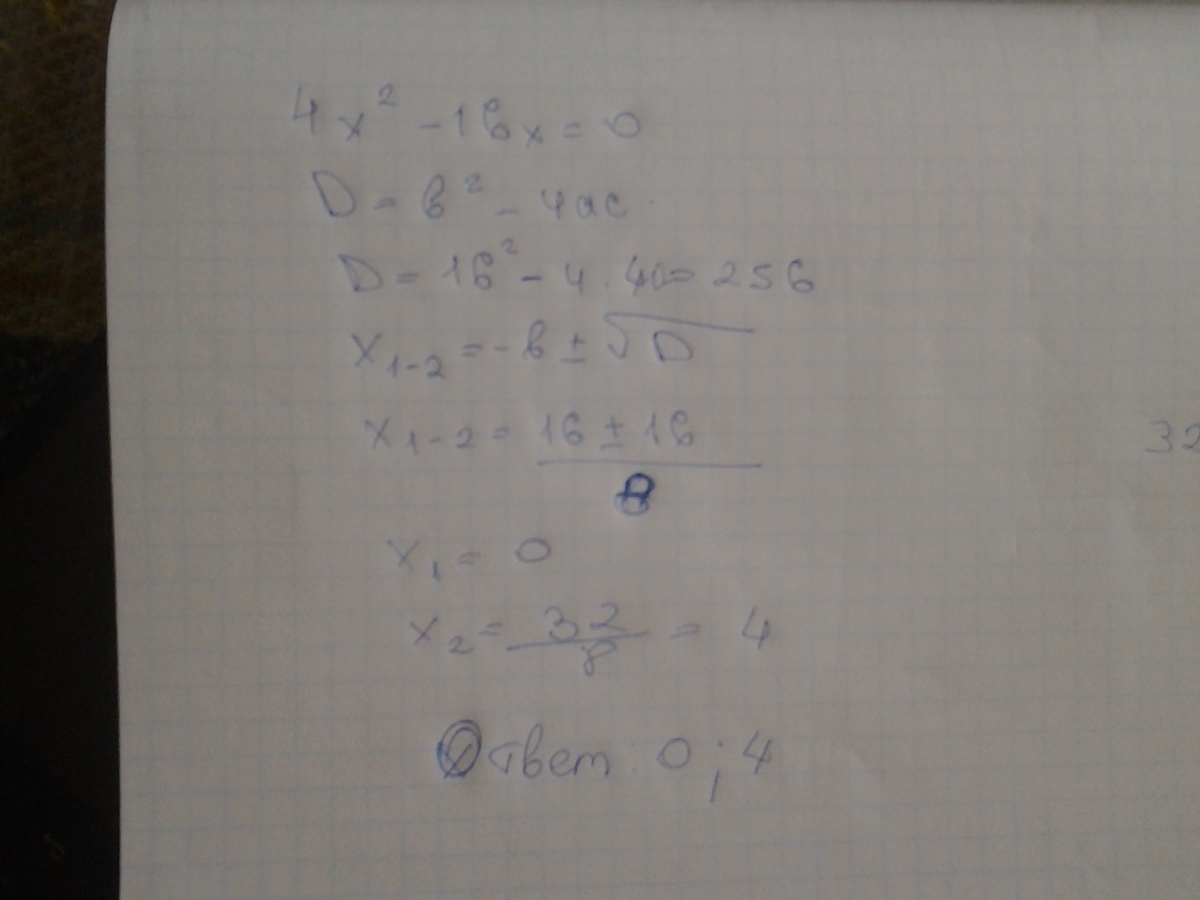 4x² - 16x = 0
D = в² - 4ас
D = 16² - 4 · 40 = 256
x₁₋₂ = -в ± √D
x₁₋₂ = 16 ± 16 / 8
x₁ = 0
x₂ = 32 / 8 = 4
Ответ 0 ; 4
32